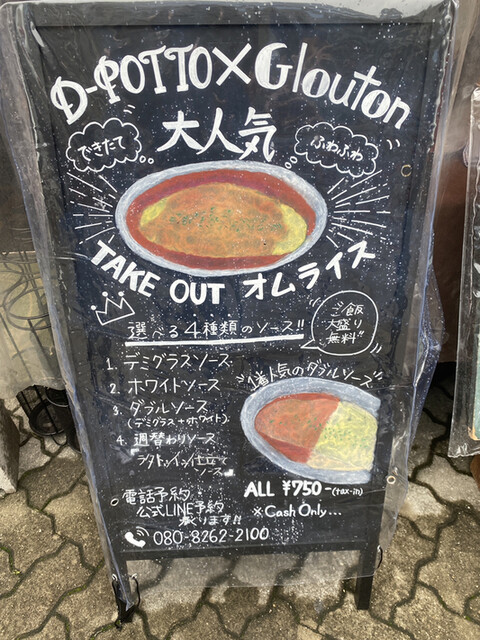 D-POTTO×Glouton
大人気
できたて
ふわふわ
TAKE OUT オムライス
選べる4種類のソース!!
ご飯
大盛り
無料!!
1. デミグラスソース
2. ホワイトソース
3. ダブルソース
(デミグラス+ホワイト)
4. 週替わりソース
ラタトゥイユ仕立て
ソース
1番人気のダブルソース
ALL ¥750-(tax-in)
※Cash Only...
電話予約
公式LINE予約
承ります!!
080-8262-2100